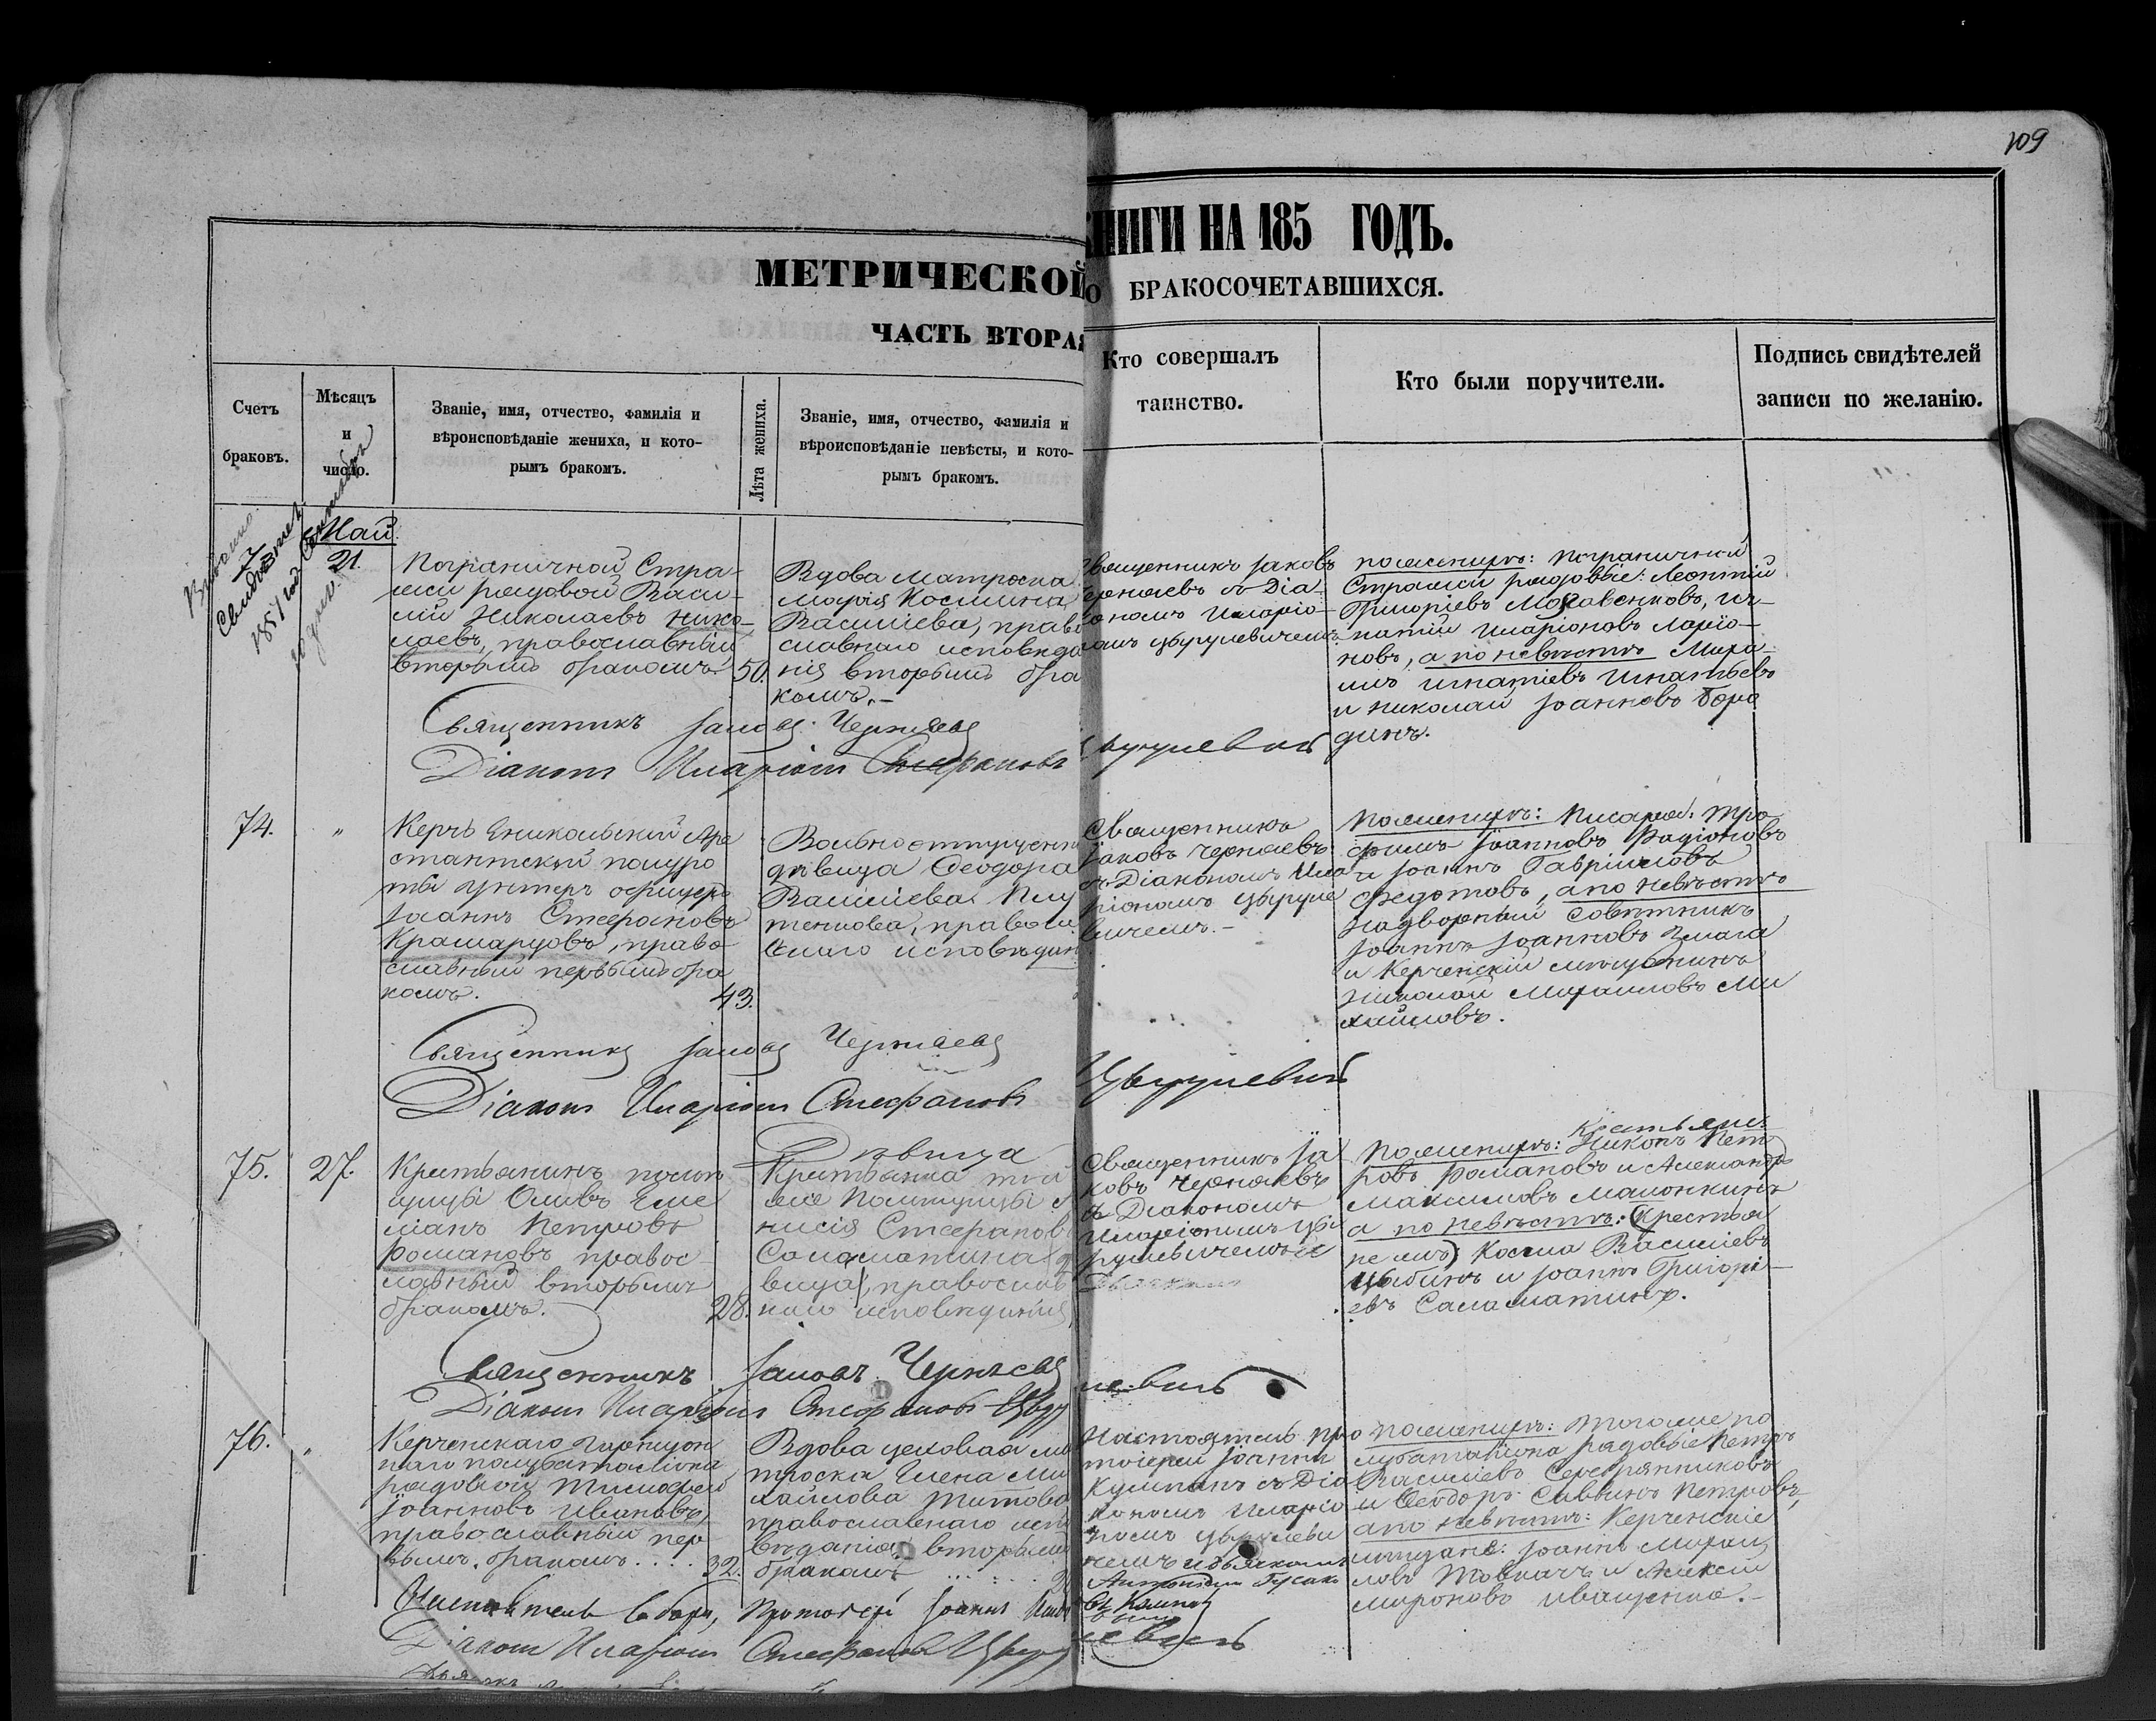 109
МЕТРИЧЕСКОЙ
КНИГИ НА 185 ГОДЪ.
ЧАСТЬ ВТОРАЯ
О БРАКОСОЧЕТАВШИХСЯ.
Счетъ
браковъ.
Мѣсяцъ
и
число.
Званіе, имя, отчество, фамилія и
вѣроисповѣданіе жениха, и кото-
рымъ бракомъ.
Лѣта жениха.
Званіе, имя, отчество, фамилія и
вѣроисповѣданіе невѣсты, и кото-
рымъ бракомъ.
Кто совершалъ
таинство.
Кто были поручители.
Подпись свидѣтелей
записи по желанію.
Май
21.
Пограничной Стра-
жи рядовой Васи-
лій Николаевъ Нико-
лаевъ, православный
вторымъ бракомъ.
50.
Вдова матроска
Марія Космина
Василіева, право
славнаго исповѣда
нія вторымъ бра
комъ.-
Священникъ Іаковъ
Черняевъ съ Діа-
кономъ Иларіо-
номъ Цырулевичемъ
по женихѣ: Пограничной
Стражи рядовые: Леонтій
Григоріевъ, Иг-
натій Иларіоновъ Ларіо-
новъ, а по невѣстѣ Миха-
илъ Игнатіевъ Игнатьевъ
и Николай Іоанновъ Боро
динъ.
Священникъ Іаковъ Черняевъ
Діаконъ Иларіонъ Стефановъ Цырулевичъ
74.
"
Керчь Еникольской Аре
стантской полуро
ты унтеръ офицеръ
Іоаннъ Стефановъ
Крамарцовъ, право
славный первымъ бра
комъ.
43.
Вольноотпущенна
дѣвица Ѳеодора
Василіева
тенкова, правосл
внаго исповѣдан
Священникъ
Іаковъ Черняевъ
съ Діакономъ Ила
ріономъ Цыруле
вичемъ.-
По женихѣ: Писаря: Тро
фимъ Іоанновъ Радіоновъ
и Іоаннъ Гавріиловъ
Федотовъ, а по невѣстѣ
Надворный Совѣтникъ
Іоаннъ Іоанновъ
и Керченскій мѣщанинъ
Николай Михаиловъ Ми
хайловъ.
Священникъ Іаковъ Черняевъ
Діаконъ Иларіонъ Стефановъ Цырулевичъ
75.
27.
Крестьянинъ помѣ
щицы Оливъ Еме
ліанъ Петровъ
Романовъ правос
лавный вторымъ
бракомъ.
28.
Дѣвица
Крестьянка той
же помѣщицы
нисія Стефанов
Саламатина
вица, православ
наго исповѣданія
Священникъ Іа
ковъ Черняевъ
съ Діакономъ
Иларіономъ Цы
рулевичемъ и
По женихѣ: Крестьяне
Никонъ Пет
ровъ Романовъ и Александръ
Максимовъ Малонкинъ
а по невѣстѣ: (Крестья
не ихъ) Косма Василіевъ
Цыбинъ и Іоаннъ Григорі-
евъ Саламатинъ.
Священникъ Іаковъ Черняевъ
Діаконъ Иларіонъ Стефановъ Цырулевичъ
76.
"
Керченскаго гарнизон
наго полубаталіона
рядовой Тимофей
Іоанновъ Ивановъ,
православный пер
вымъ бракомъ....
32.
Вдова цеховая ма
троска Елена Ми
хайлова Титова
православнаго испо
вѣданія вторымъ
бракомъ
Настоятель Про
тоіерей Іоаннъ
съ Діа
кономъ Иларіо
номъ Цырулеви
чемъ и дьячкомъ
по женихѣ: того же по
лубаталіона рядовые Петръ
Василіевъ Серебрянниковъ
и Ѳеодоръ Петровъ,
а по невѣстѣ: Керченскіе
мѣщане: Іоаннъ Михаи
ловъ Товкачъ и Алексій
Мироновъ Иващенко.-
Настоятель Собора, Протоіерей Іоаннъ
Діаконъ Иларіонъ Стефановъ Цырулевичъ